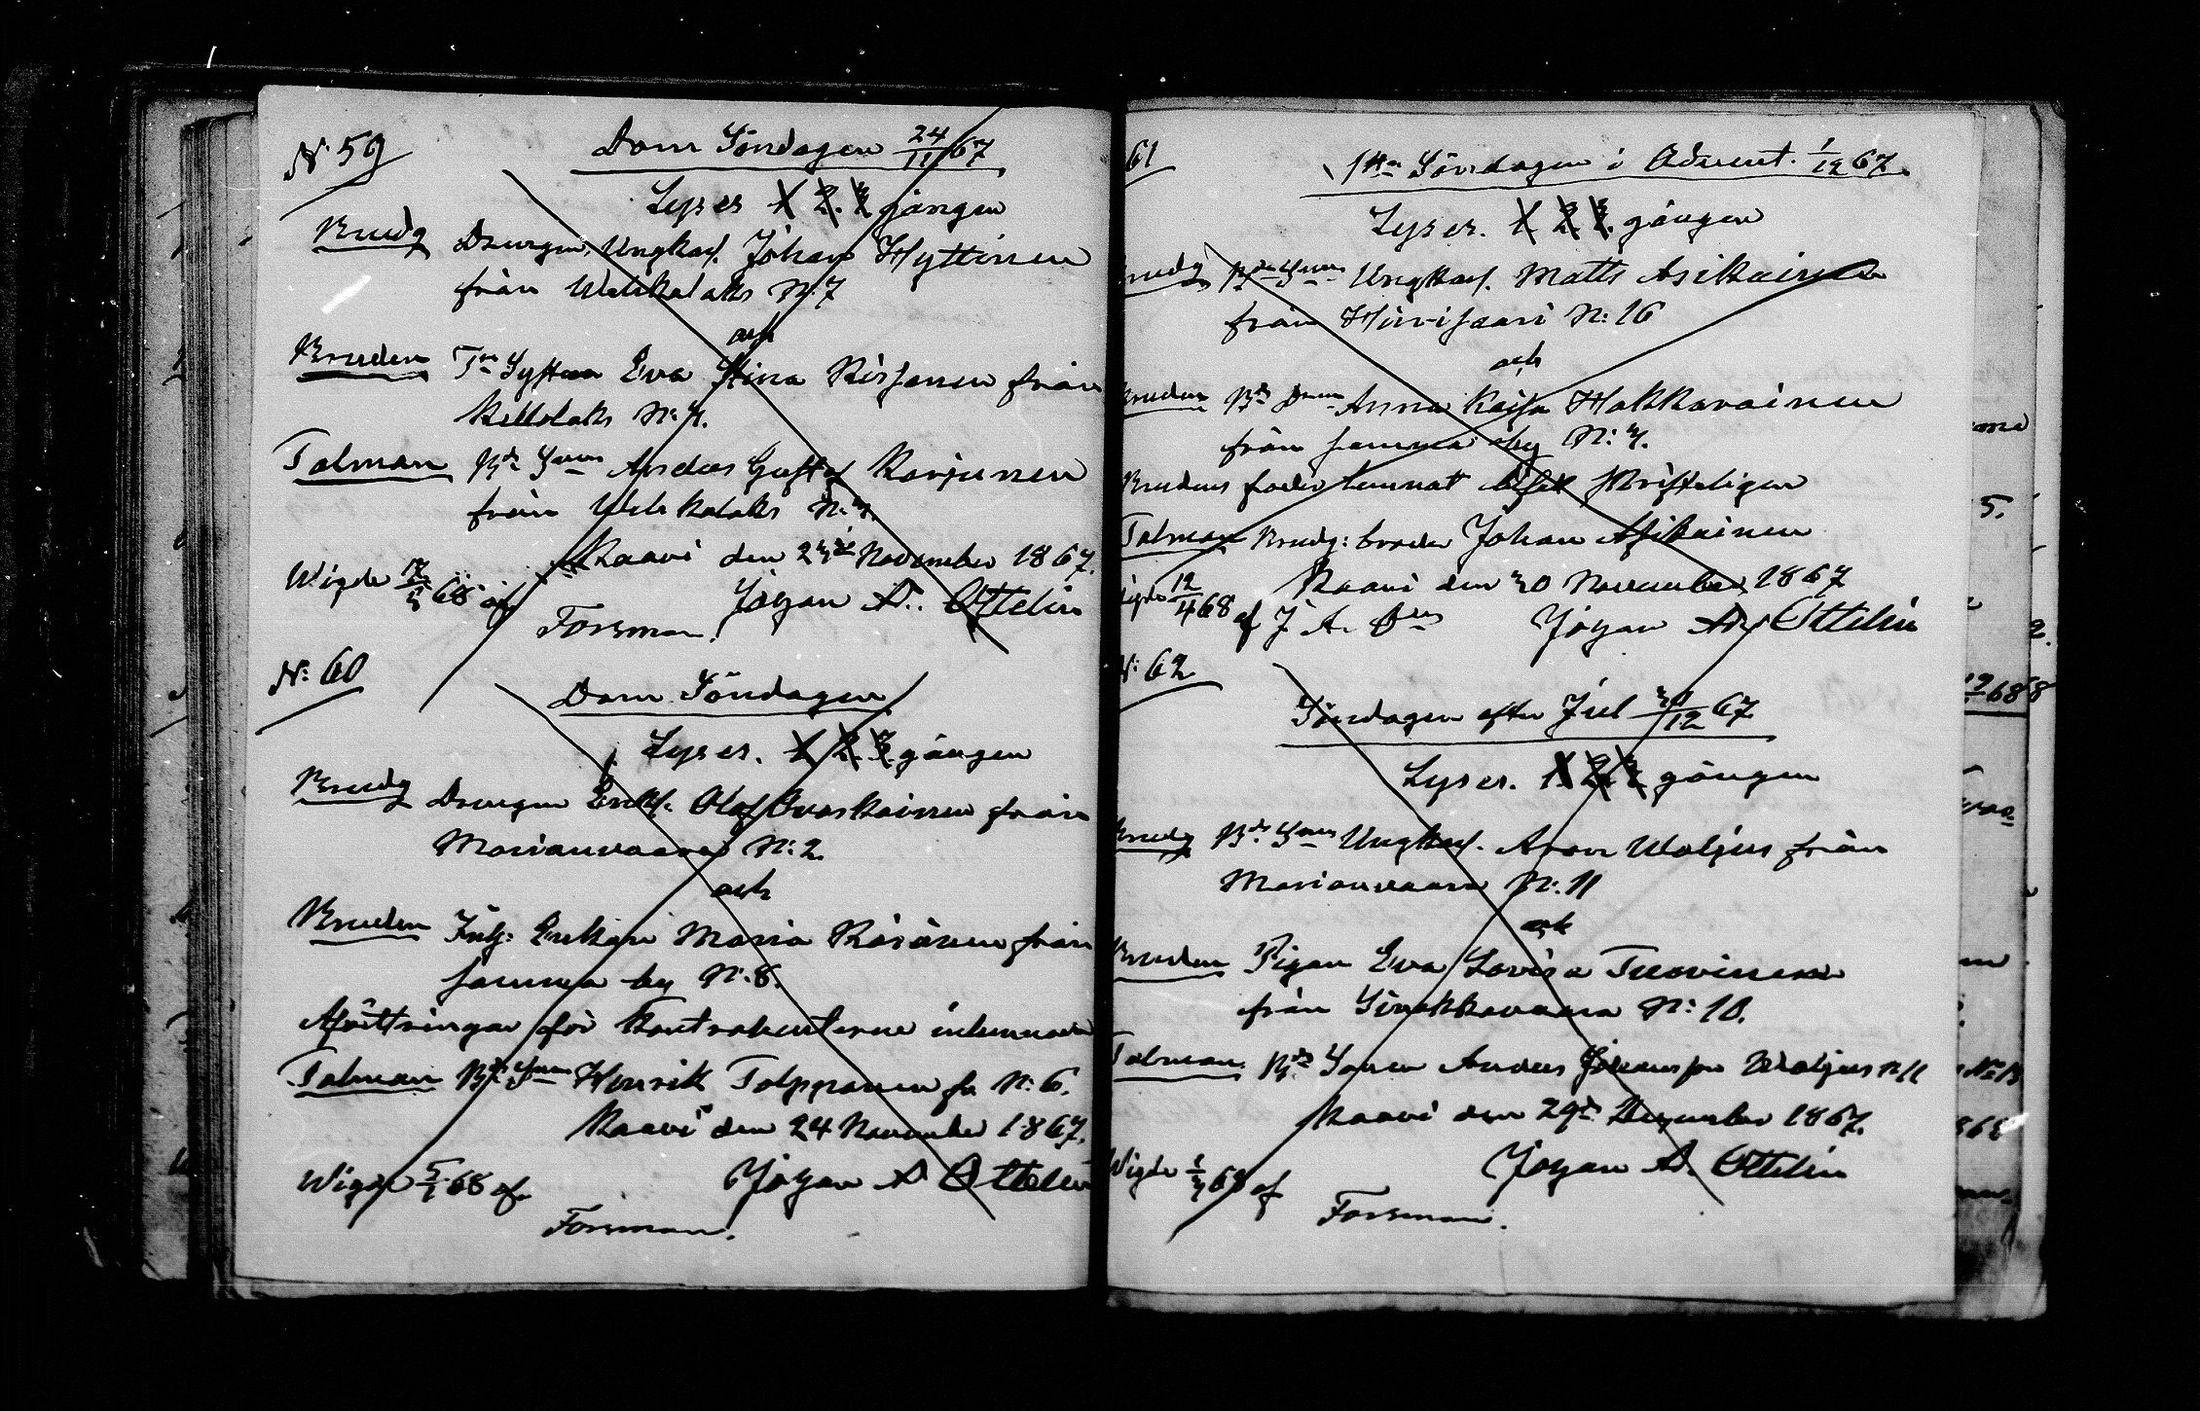 N 59
Dom Söndagen 24/11 67
Lyses 1 2. 3 gången
Brudg Drengen, Ungkarl. Johan Hyttinen
från Wehkalaks N:7
och
Bruden Eva Stina Kirjonen från
Kellolaks N: 4.
Talman Bde Sonen Anders Gustaf Karjunen
från Wehkalaks N: 4.
Kaavi den 23de November 1867.
Wigde 68 af
Johan A. Ottelin
Forsman.
N: 60
Dom Söndagen
Lyses. 1 2. 3. gången
Brudg Drengen Enkl. Olof Ovaskainen från
Marianvaara N: 2.
och
Bruden Inh: Enkan Maria Räsänen från
samma by N: 8.
Afvittringar för Kontrahenterne inlemnade
Talman Bde Sonen Henrik Tolppanen fr. N: 6.
Kaavi den 24 November 1867.
Wigde 5/1 68 af
Johan A Ottelin
Forsman.
61
1sta Söndagen i Advent. 1/12 67.
Lyses. 1 2 3. gången
Brudg Bde Sonen Ungkarl. Matts Asikainen
från Hirvisaari N: 16
och
Bruden Bde Dren Anna Kaisa Hakkarainen
från samma by N: 4.
Brudens fader lemnat bifall skrifteligen
Talman Brudg: broder Johan Asikainen
Kaavi den 30 November 1867
Wigde 12/4 68 af J. A. Oln
Johan Ad. Ottelin
N: 62
Söndagen efter Jul 30/12 67
Lyses. 1 2. 3 gången
Brudg Bde Sonen Ungkarl. Aron Waljus från
Marianvaara N: 11
och
Bruden Pigan Eva Lovisa Tuovinen
från Sivakkavaara N: 10.
Talman Bde Sonen Anders Johansson Waljus N 11
Kaavi den 29de December 1867.
Wigde 68 af
Johan A. Ottelin
Forsman.